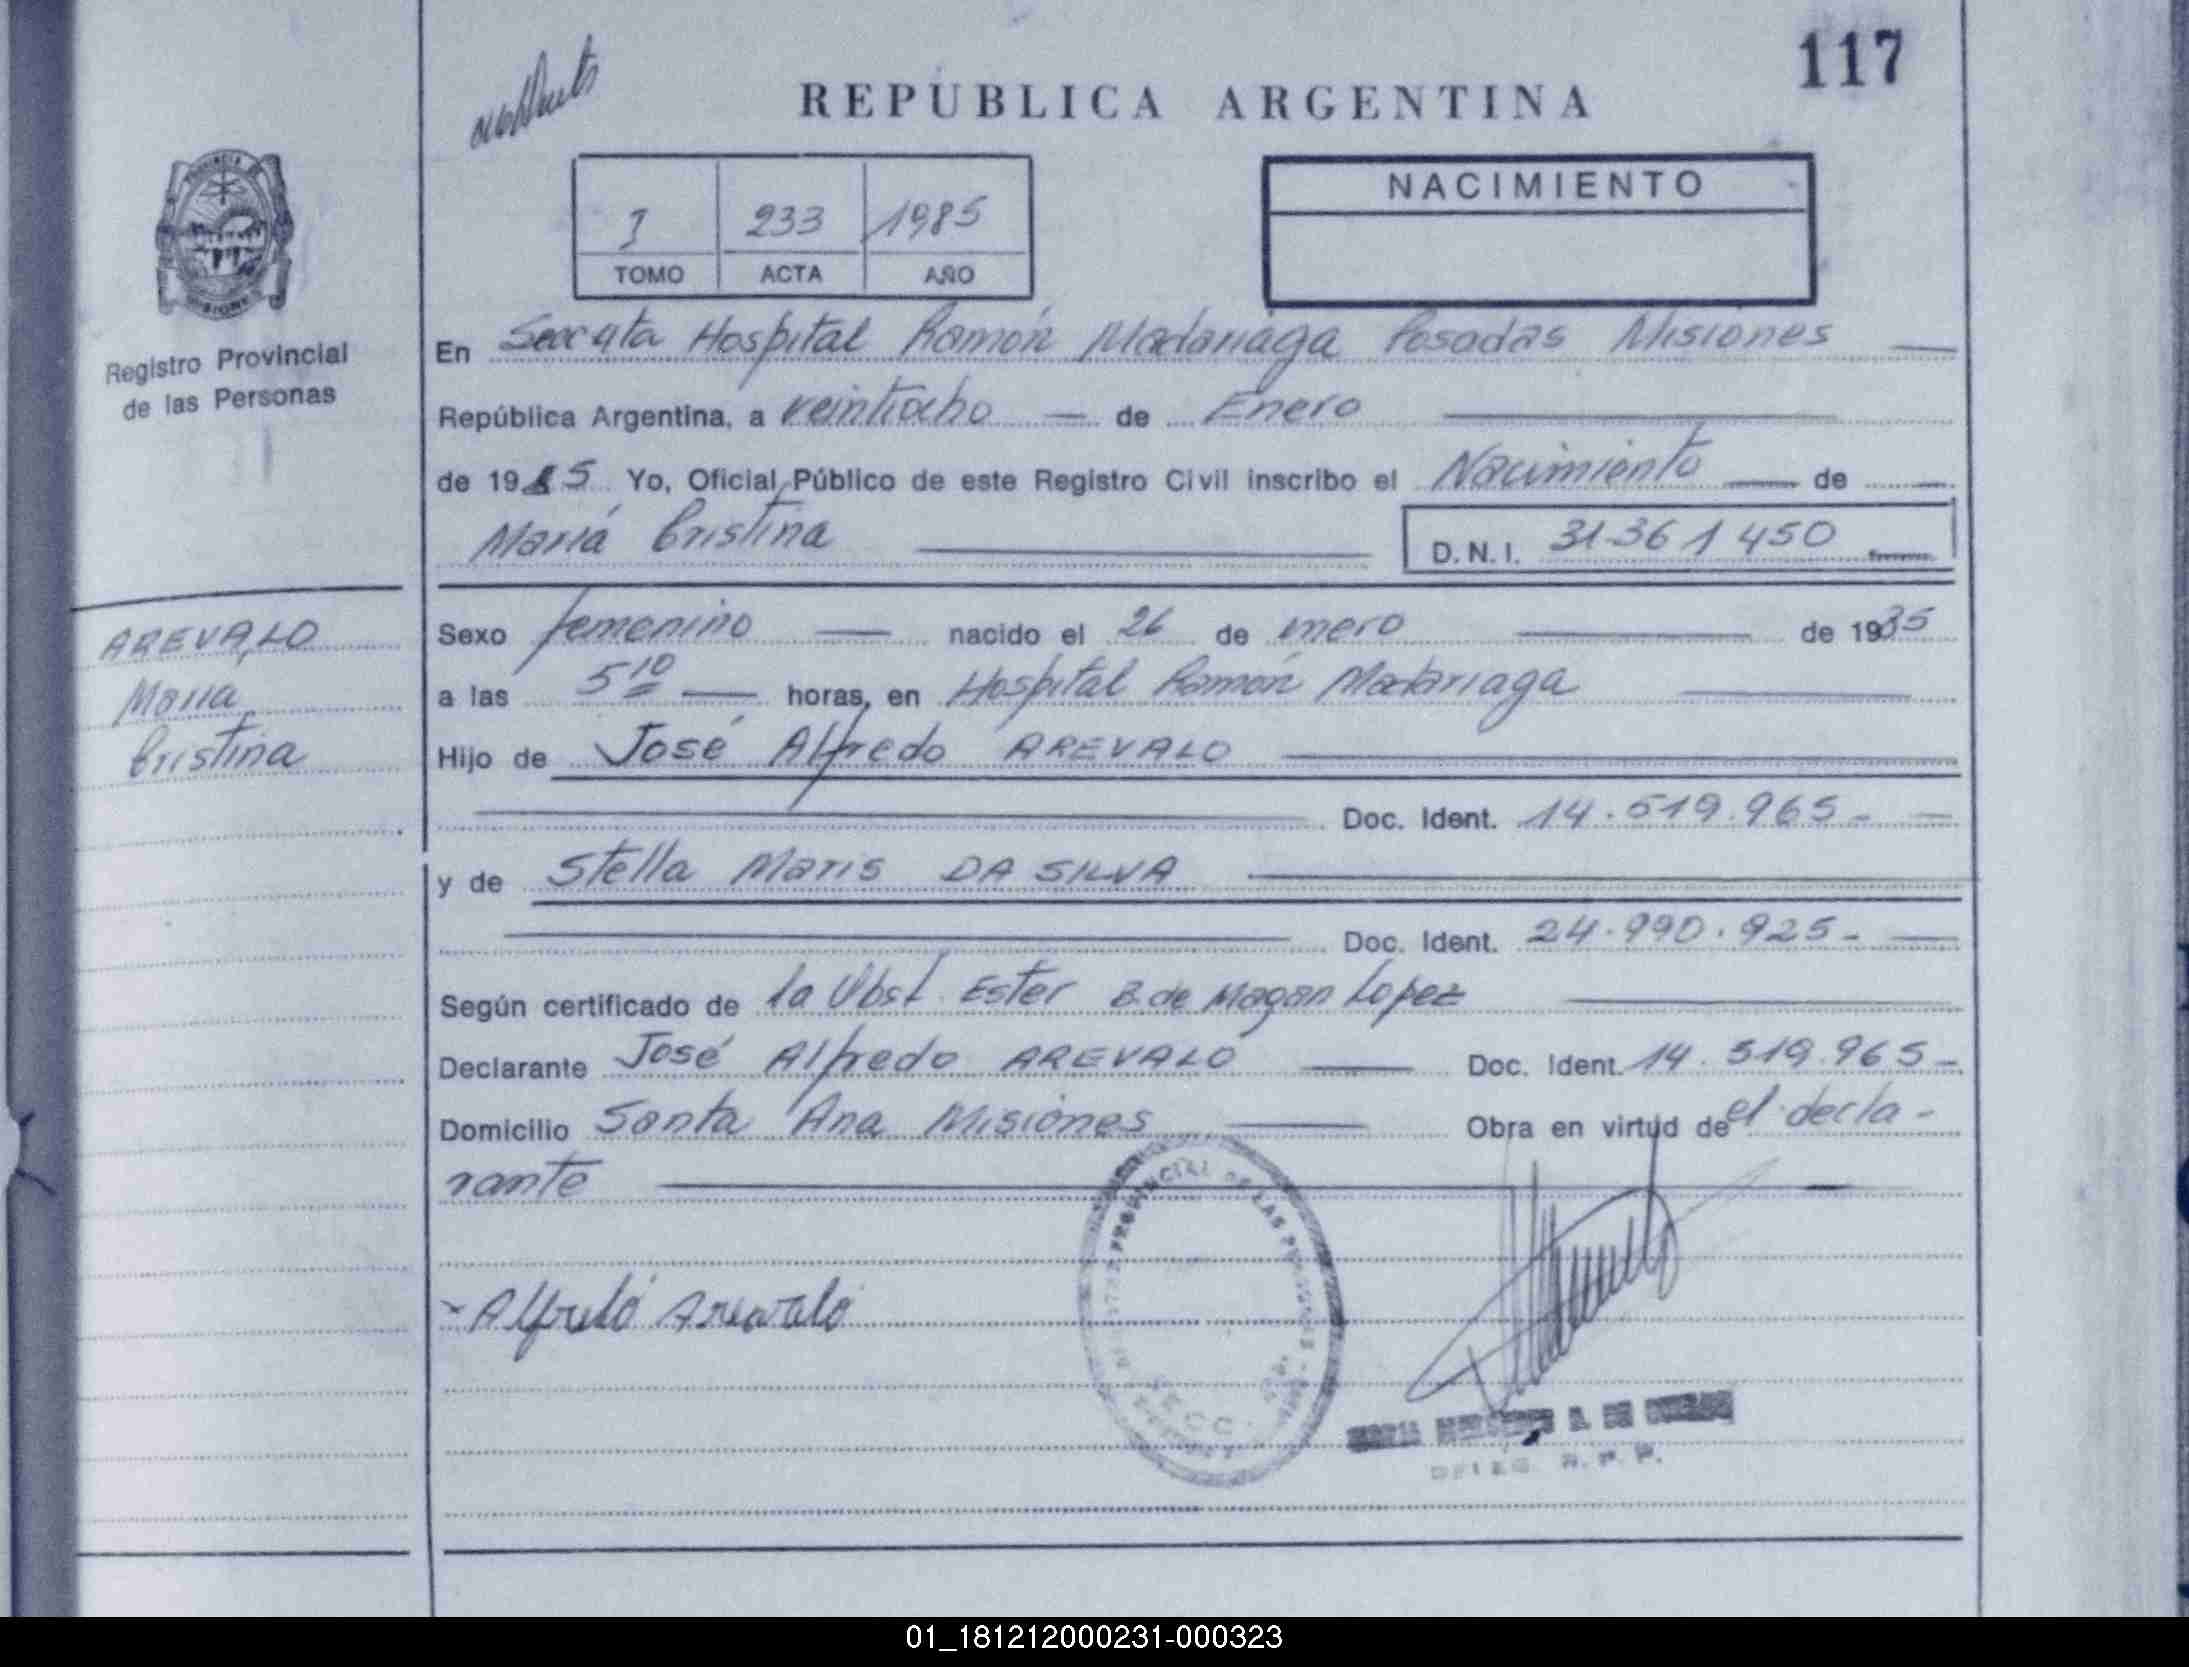 117
REPUBLICA ARGENTINA
NACIMIENTO
I 233 1985
TOMO ACTA AÑO
PROVINCIA DE
MISIONES
Registro Provincial
de las Personas
En Hospital Ramón Madariaga Posadas Misiones
República Argentina, a veintiocho de Enero
de 1985 Yo, Oficial Público de este Registro Civil inscribo el Nacimiento de
María Cristina
D.N.I. 31361450
AREVALO
Maria
Cristina
Sexo femenino nacido el 26 de enero de 1985
a las 5 10 horas, en Hospital Ramón Madariaga
Hijo de José Alfredo AREVALO
Doc. Ident. 14.519.965-
y de Stella Maris DA SILVA
Doc. Ident. 24.990.925-
Según certificado de la Obst. Ester B. de Magan Lopez
Declarante José Alfredo AREVALO Doc. Ident. 14.519.965-
Domicilio Santa Ana Misiones Obra en virtud de el decla-
rante
PROVINCIAL DE LAS
SECC.
Alfredo Arevalo
DELEG. R. P. P.
01_181212000231-000323